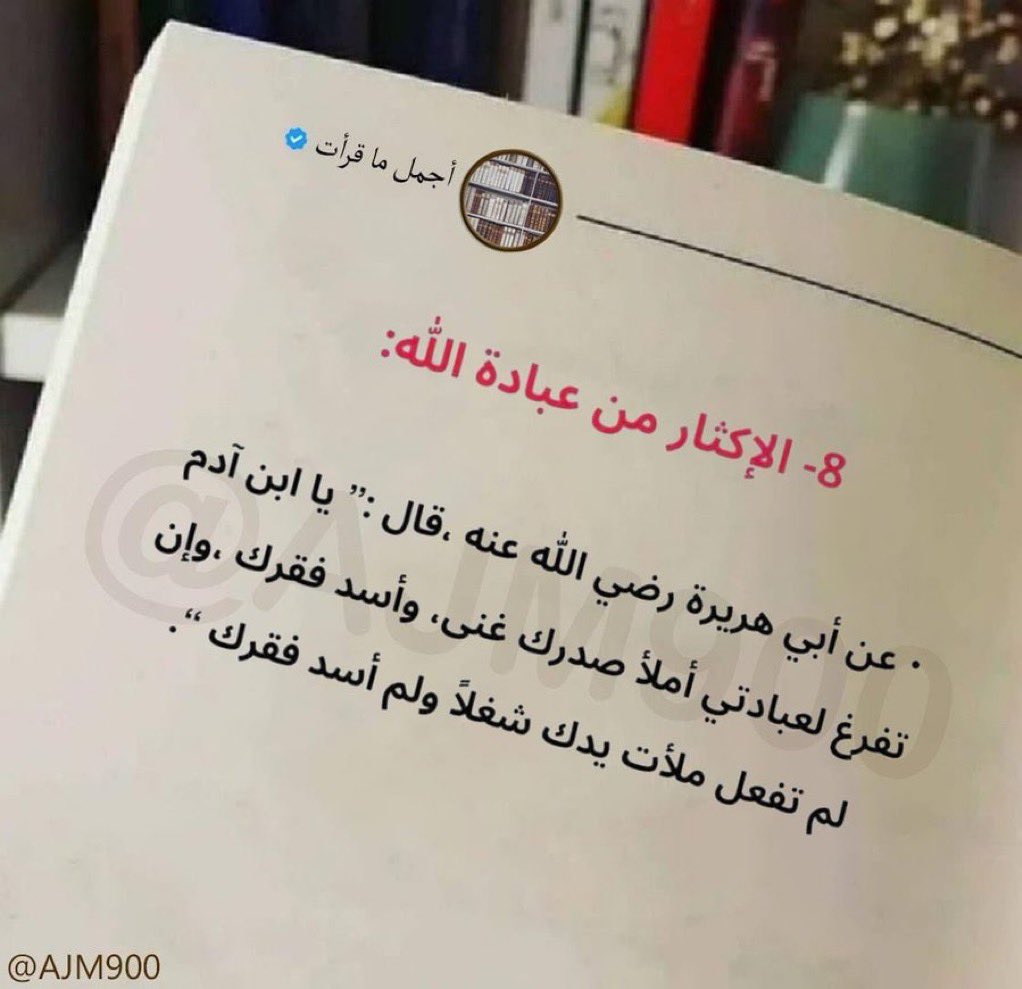 أجمل ما قرأت
8- الإكثار من عبادة الله:
• عن أبي هريرة رضي الله عنه ،قال :” يا ابن آدم
تفرغ لعبادتي أملأ صدرك غنى، وأسد فقرك ،وإن
لم تفعل ملأت يدك شغلاً ولم أسد فقرك “.
@AJM900
@AJM900